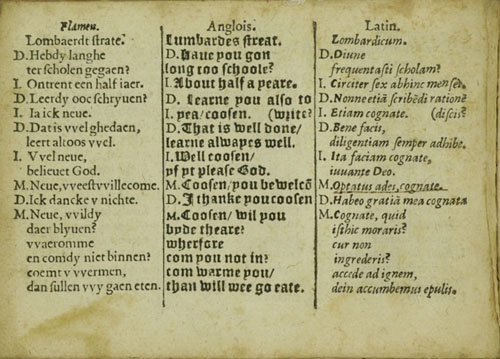 Flamen.
Lombaerdt strate.
D. Hebdy langhe
ter scholen gegaen?
I. Ontrent een half iaer.
D. Leerdy ooc schryuen?
I. Ia ick neue.
D. Dat is vvel ghedaen,
leert altoos vvel.
I. Vvel neue,
belieuet God.
M. Neue, vveest vvillecome.
D. Ick dancke v nichte.
M. Neue, vvildy
daer blyuen?
vvaeromme
en comdy niet binnen?
coemt v vvermen,
dan sullen vvy gaen eten.
Anglois.
Lumbardes streat.
D. Haue you gon
long too schoole?
I. About half a yeare.
D. Learne you also to
I. yea/ coosen. (write?
D. That is well done/
learne alwayes well.
I. Well coosen/
yf yt please God.
M. Coosen/ you be welcō
D. I thanke you coosen
M. Coosen/ wil you
byde theare?
wherfore
com you not in?
com warme you/
than will wee go eate.
Latin.
Lombardicum.
D. Diune
frequentasti scholam?
I. Circiter sex abhinc menses.
D. Nonne etiā scribēdi rationē
I. Etiam cognate. (discis?
D. Bene facis,
diligentiam semper adhibe.
I. Ita faciam cognate,
iuuante Deo.
M. Optatus ades cognate.
D. Habeo gratiā mea cognata
M. Cognate, quid
isthic moraris?
cur non
ingrederis?
accede ad ignem,
dein accumbemus epulis.